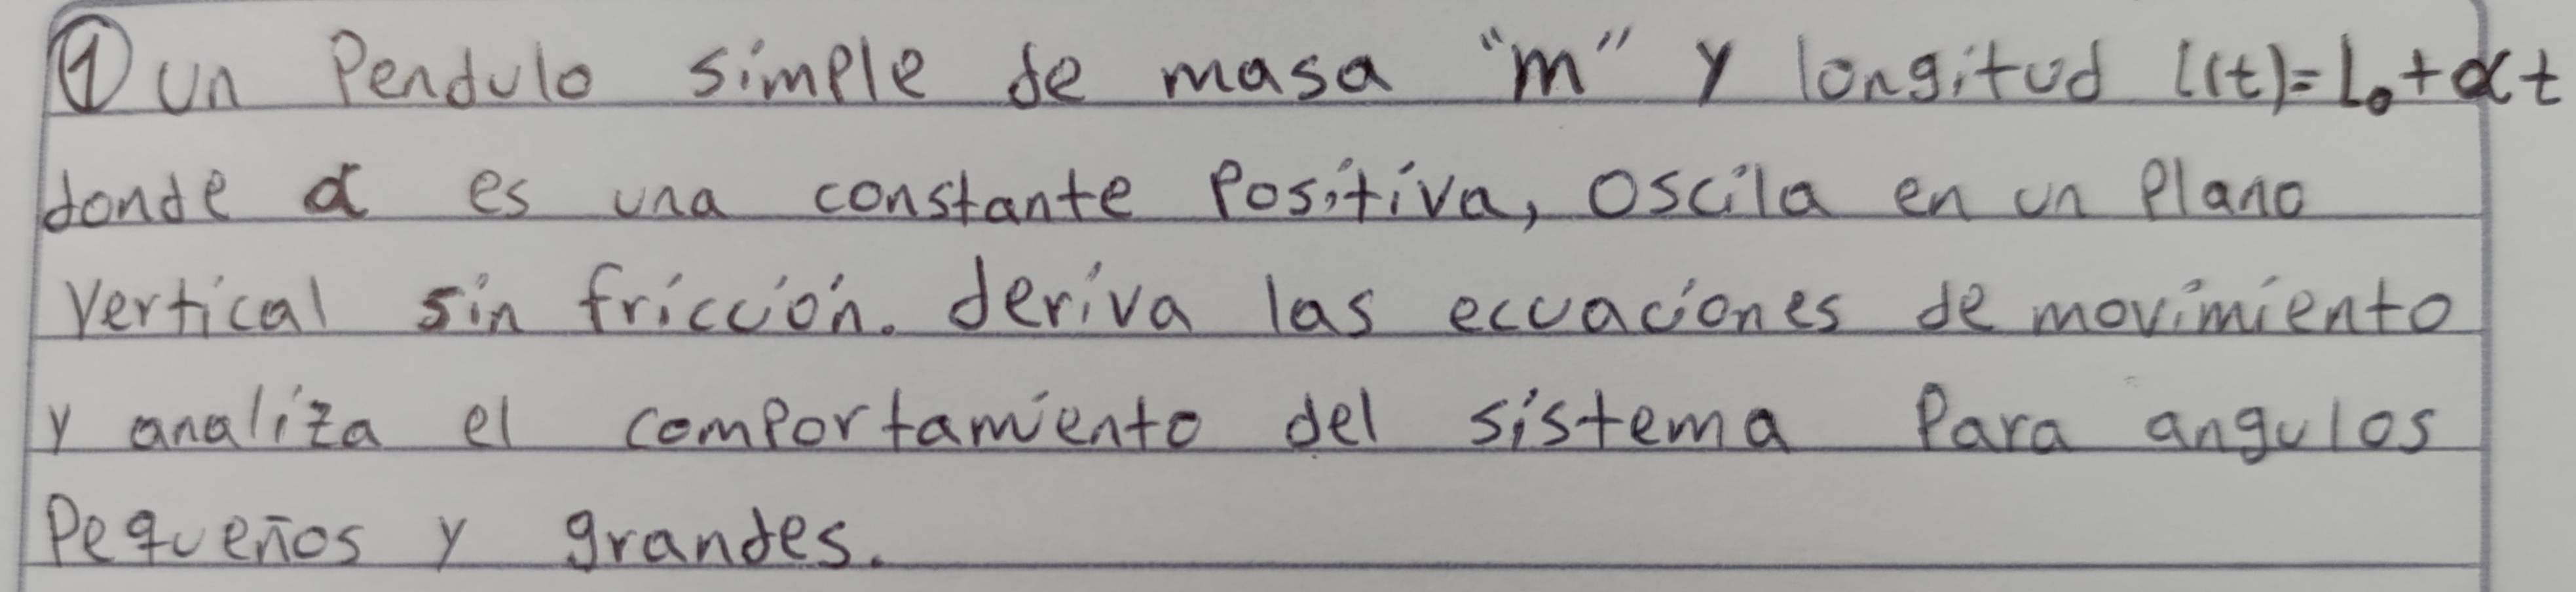 ① un Pendulo simple de masa "m" y longitud l(t)=L₀+αt
donde α es una constante Positiva, Oscila en un Plano
Vertical sin fricción. deriva las ecuaciones de movimiento
y analiza el comportamiento del sistema Para angulos
Pequeños y grandes.